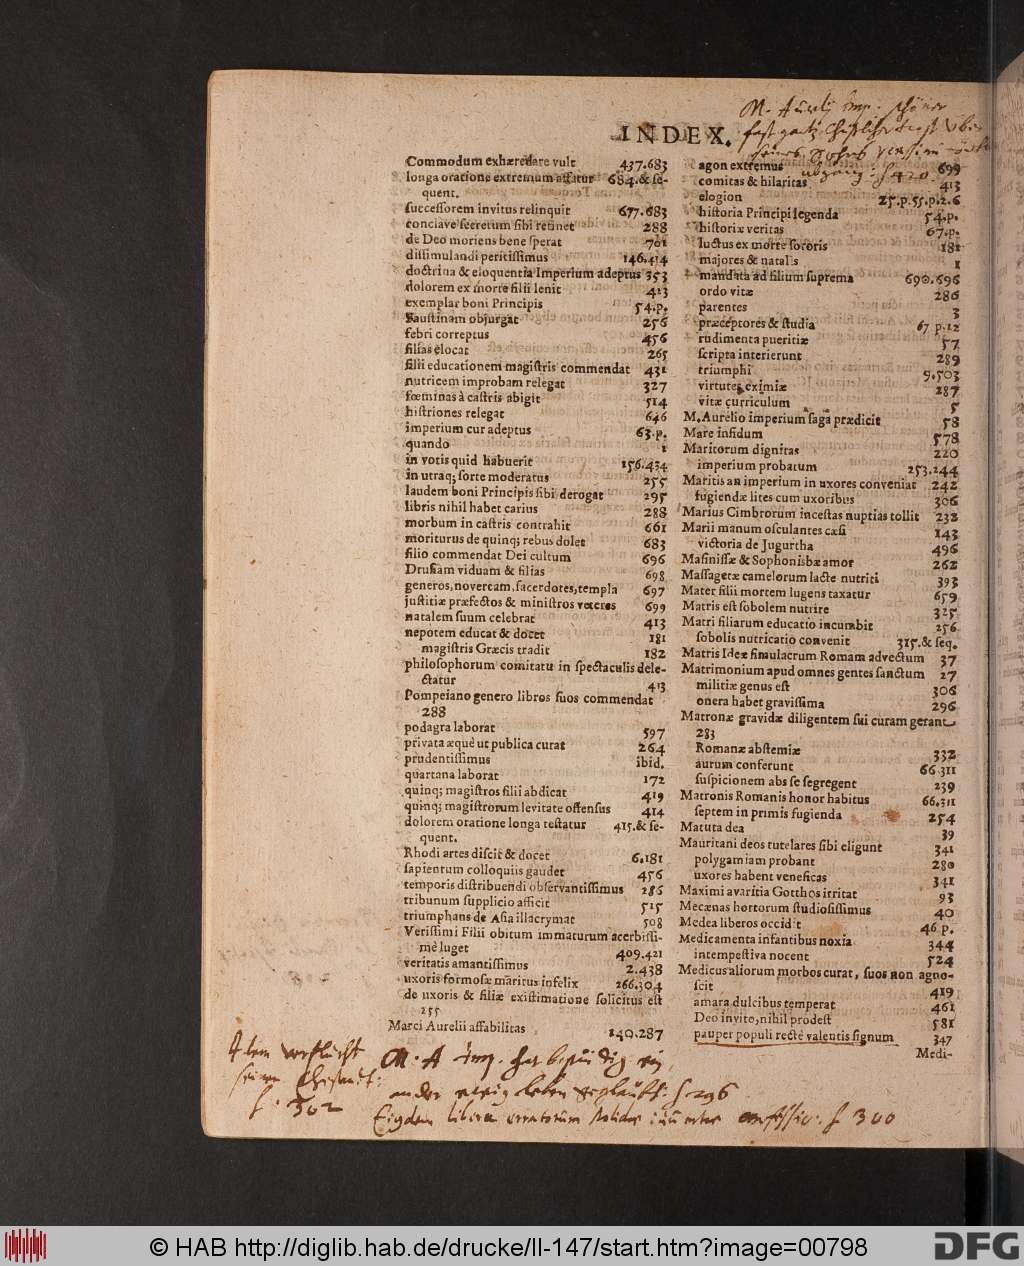 M. Aurelij imp. schöner
INDEX.
Commodum exhæredare vult 437.683
longa oratione extremum affatur 684.& se-
quent.
successorem invitus relinquit 677.683
conclave secretum sibi retinet 288
de Deo moriens bene sperat 701
dissimulandi peritissimus 146.414
doctrina & eloquentia Imperium adeptus 353
dolorem ex morte filii lenit 413
exemplar boni Principis 54.p.
Faustinam objurgat 256
febri correptus 456
filias elocat 265
filii educationem magistris commendat 431
nutricem improbam relegat 327
fœminas à castris abigit 514
histriones relegat 646
imperium cur adeptus 63.p.
quando 1
in votis quid habuerit 156.434
in utraq; sorte moderatus 255
laudem boni Principis sibi derogat 295
libris nihil habet carius 288
morbum in castris contrahit 661
moriturus de quinq; rebus dolet 683
filio commendat Dei cultum 696
Drusiam viduam & filias 698
generos, novercam, sacerdotes, templa 697
justitiæ præfectos & ministros veteres 699
natalem suum celebrat 413
nepotem educat & docet 181
magistris Græcis tradit 182
philosophorum comitatu in spectaculis dele-
ctatur 413
Pompeiano genero libros suos commendat
288
podagra laborat 597
privata æquè ut publica curat 264
prudentissimus ibid.
quartana laborat 172
quinq; magistros filii abdicat 419
quinq; magistrorum levitate offensus 414
dolorem oratione longa testatur 415.& se-
quent.
Rhodi artes discit & docet 6.181
sapientum colloquiis gaudet 456
temporis distribuendi observantissimus 286
tribunum supplicio afficit 515
triumphans de Asia illacrymat 508
Verissimi Filii obitum immaturum acerbissi-
mè luget 409.421
veritatis amantissimus 2.438
uxoris formosæ maritus infelix 266.304
de uxoris & filiæ existimatione solicitus est
255
Marci Aurelii affabilitas 140.287
agon extremus 699
comitas & hilaritas 413
elogion 25.p.55.p.2.6
historia Principi legenda 54.p.
historiæ veritas 67.p.
luctus ex morte sororis 181
majores & natalis 1
mandata ad filium suprema 690.696
ordo vitæ 286
parentes 3
præceptores & studia 67 p.12
rudimenta pueritiæ 57
scripta interierunt 289
triumphi 9.503
virtutes eximiæ 287
vitæ curriculum 5
M. Aurelio imperium saga prædicit 58
Mare infidum 578
Maritorum dignitas 220
imperium probatum 253.244
Maritis an imperium in uxores conveniat 242
fugiendæ lites cum uxoribus 306
Marius Cimbrorum incestas nuptias tollit 232
Marii manum osculantes cæsi 143
victoria de Jugurtha 496
Masinissæ & Sophonisbæ amor 262
Massagetæ camelorum lacte nutriti 393
Mater filii mortem lugens taxatur 659
Matris est sobolem nutrire 325
Matri filiarum educatio incumbit 256
sobolis nutricatio convenit 315.& seq.
Matris Ideæ simulacrum Romam advectum 37
Matrimonium apud omnes gentes sanctum 27
militiæ genus est 306
onera habet gravissima 296
Matronæ gravidæ diligentem sui curam gerant
283
Romanæ abstemiæ 332
aurum conferunt 66.311
suspicionem abs se segregent 239
Matronis Romanis honor habitus 66.311
septem in primis fugienda 254
Matuta dea 39
Mauritani deos tutelares sibi eligunt 341
polygamiam probant 280
uxores habent veneficas 341
Maximi avaritia Gotthos irritat 93
Mecænas hortorum studiosissimus 40
Medea liberos occidit 46 p.
Medicamenta infantibus noxia 344
intempestiva nocent 524
Medicus aliorum morbos curat, suos non agno-
scit 419
amara dulcibus temperat 461
Deo invito, nihil prodest 581
pauper populi rectè valentis signum 347
Medi-
f. 302
M. A imp. hat
ander ewig leben geglaubt. f 296
f 300
© HAB http://diglib.hab.de/drucke/li-147/start.htm?image=00798
DFG